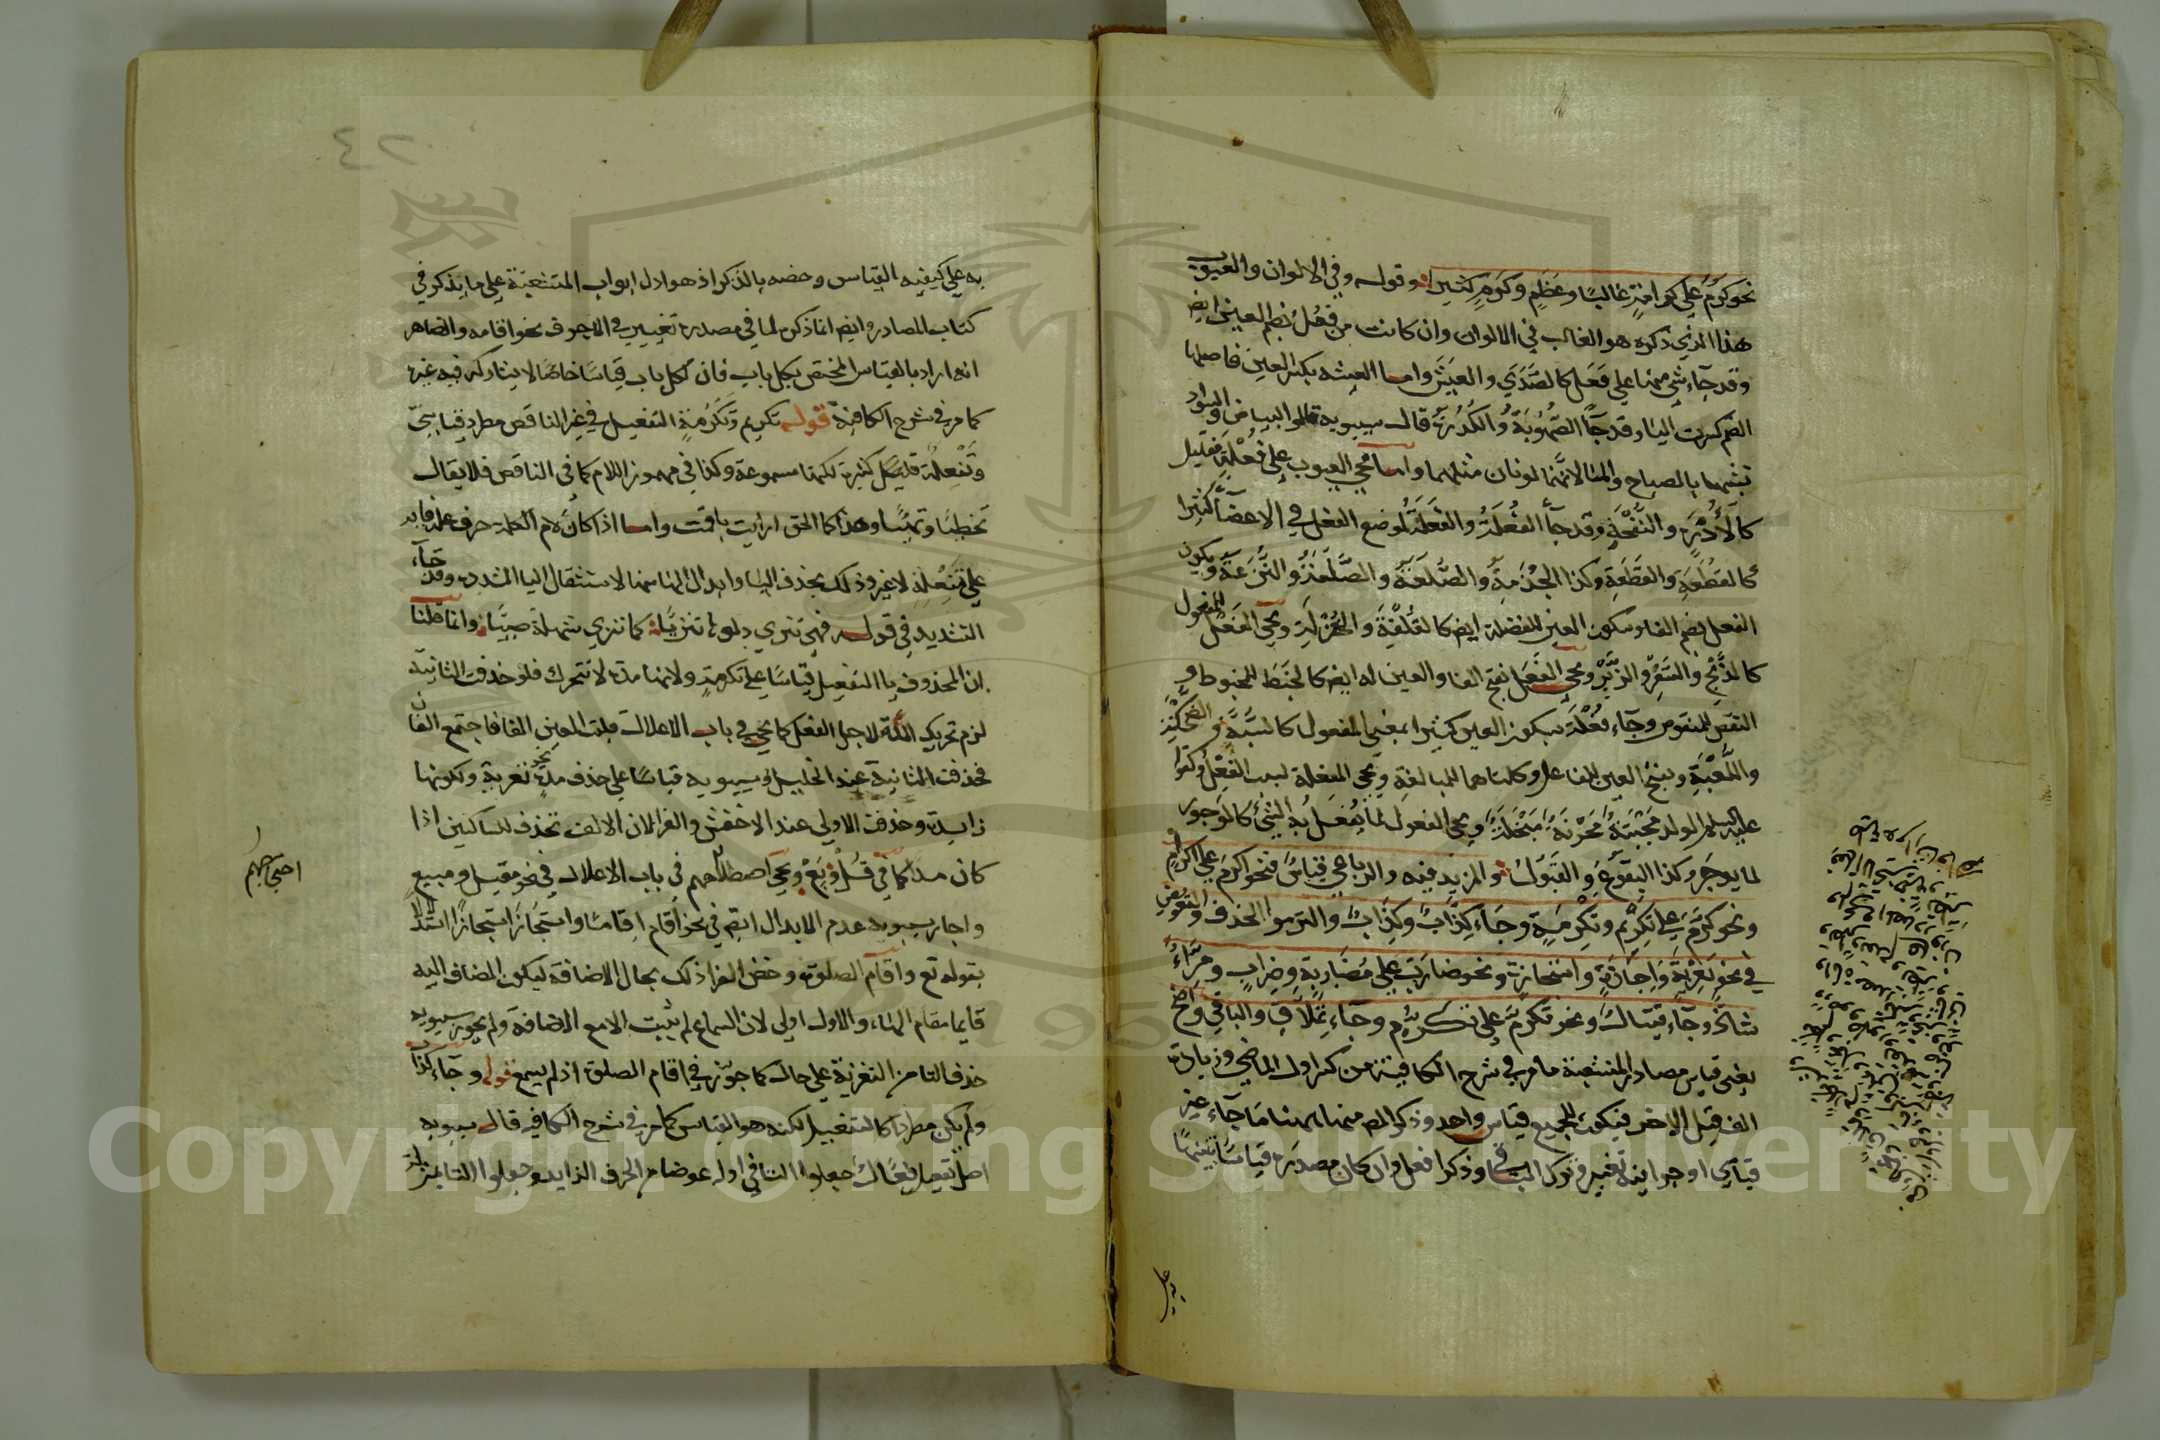 نحو كرم على كرامة غالبا وعظم وكرم كثيرا وقوله وفي الالوان والعيوب
هذا الذي ذكره هو الغالب في الالوان وان كانت من فعل بضم العين ايض
وقد جاء شئ منها على فعل كالصدى والعيس واما العيسة بكسر العين فاصلها
الضم كسرت للياء وقد جاء الصهوبة والكدرة قال سيبويه قالوا البياض والسواد
تشبيها بالصباح والمساء لانهما لونان مثلهما واما مجي العيوب على فعلة فقليل
كالادرة والنفخة وقد جاء الفعلة والفعلة لموضع الفعل في الاعضاء كثيرا
كالقطعة والقطعة وكذا الجذمة والصلعة والصلعة والنزعة ويكون
الفعل بضم الفاء وسكون العين للفضلة ايض كالقلفة والغرلة ويجي الفعل للمفعول
كالذبح والسفر والزبر ويجي الفعل بفتح الفاء والعين له ايض كالخبط للمخبوط و
النقض للمنقوض وجاء فعلة بسكون العين كثيرا بمعنى المفعول كالسبة والضحكة
واللعبة وبفتح العين للفاعل وكلتاهما للمبالغة ويجي المفعلة لسبب الفعل كقوله
عليه السلم الولد مجبنة محزنة مبخلة ويجي الفعول لما يفعل به الشئ كالوجور
لما يوجر وكذا النقوع والقيوء والمزيد فيه والرباعي قياس فنحو اكرم على اكرام
ونحو كرم على تكريم وتكرمة وجاء كذاب وكذاب والتزموا الحذف والتعويض
في نحو تعزية واجازة واستجازة ونحو ضارب على مضاربة وضراب ومراء
شاذ وجاء قيتال ونحو تكرم على تكرم وجاء تملاق والباقي واضح
يعني قياس مصادر المنشعبة ما مر في شرح الكافية من كسر اول الماضي وزيادة
الف قبل الاخر فيكون للجميع قياس واحد وذكر المص منها ههنا ما جاء غير
قياسي او جرا فيه تغير وترك الباقي وذكر افعل وان كان مصدره قياسا تنبيها
عليه
به على كيفية القياس وخصه بالذكر اذ هو اول ابواب المتشعبة على ما يذكر في
كتاب المصادر وايضا انما ذكره لما في مصدره تغيير في الاجوف نحو اقامة والظاهر
انه اراد بالقياس المختص بكل باب فان لكل باب قياسا خاصا لا يشاركه فيه غيره
كما مر في شرح الكافية قوله تكريم وتكرمة التفعيل في غير الناقص مطرد قياسي
وتفعلة قليل كثيرة لكنها مسموعة وكذا في مهموز اللام كما في الناقص فلا يقال
تخطيئا وتهنيئا وهذا كما الحق ارايت باقمت واما اذا كان لام الكلمة حرف علة فانه
على تفعلة لا غير وذلك بحذف الياء وابدال الهاء منها لاستثقال الياء المشددة وقد جاء
التشديد في قوله فهي تنزي دلوها تنزيا كما تنزي شهلة صبيا وانما قلنا
ان المحذوف ياء التفعيل قياسا على تكرمة ولانها مدة لا تتحرك فلو حذفت الثانية
لزم تحريك المدة لاجل الفعل كما يجي في باب الاعلال قلبت العين الفا فاجتمع الفان
فحذفت الثانية عند الخليل وسيبويه قياسا على حذف مدة نحو تعزية ولكونها
زايدة وحذفت الاولى عند الاخفش والفراء لان الالف تحذف للساكنين اذا
كان مدا كما في قل وبع ويجي اصطلاحهم في باب الاعلال في نحو مقيل ومبيع
واجاز سيبويه عدم الابدال ايضا في نحو اقام اقاما واستجاز استجازا استدلالا
بقوله تع واقام الصلوة وخص الفراء ذلك بحال الاضافة ليكون المضاف اليه
قايما مقام الهاء والاول اولى لان السماع لم يثبت الا مع الاضافة ولم يجوز سيبويه
حذف التاء من التعزية على حال كما جوزه في اقام الصلوة اذ لم يسمع قوله وجاء كذاب
ولم يكن مطردا كالتفعيل لكنه هو القياس كما مر في شرح الكافيه قال سيبويه
اصل تفعيل فعال جعلوا التاء في اوله عوضا من الحرف الزايد وجعلوا الياء بمنزلة
احتجاجهم
٤٢
Copyright © King Saud University